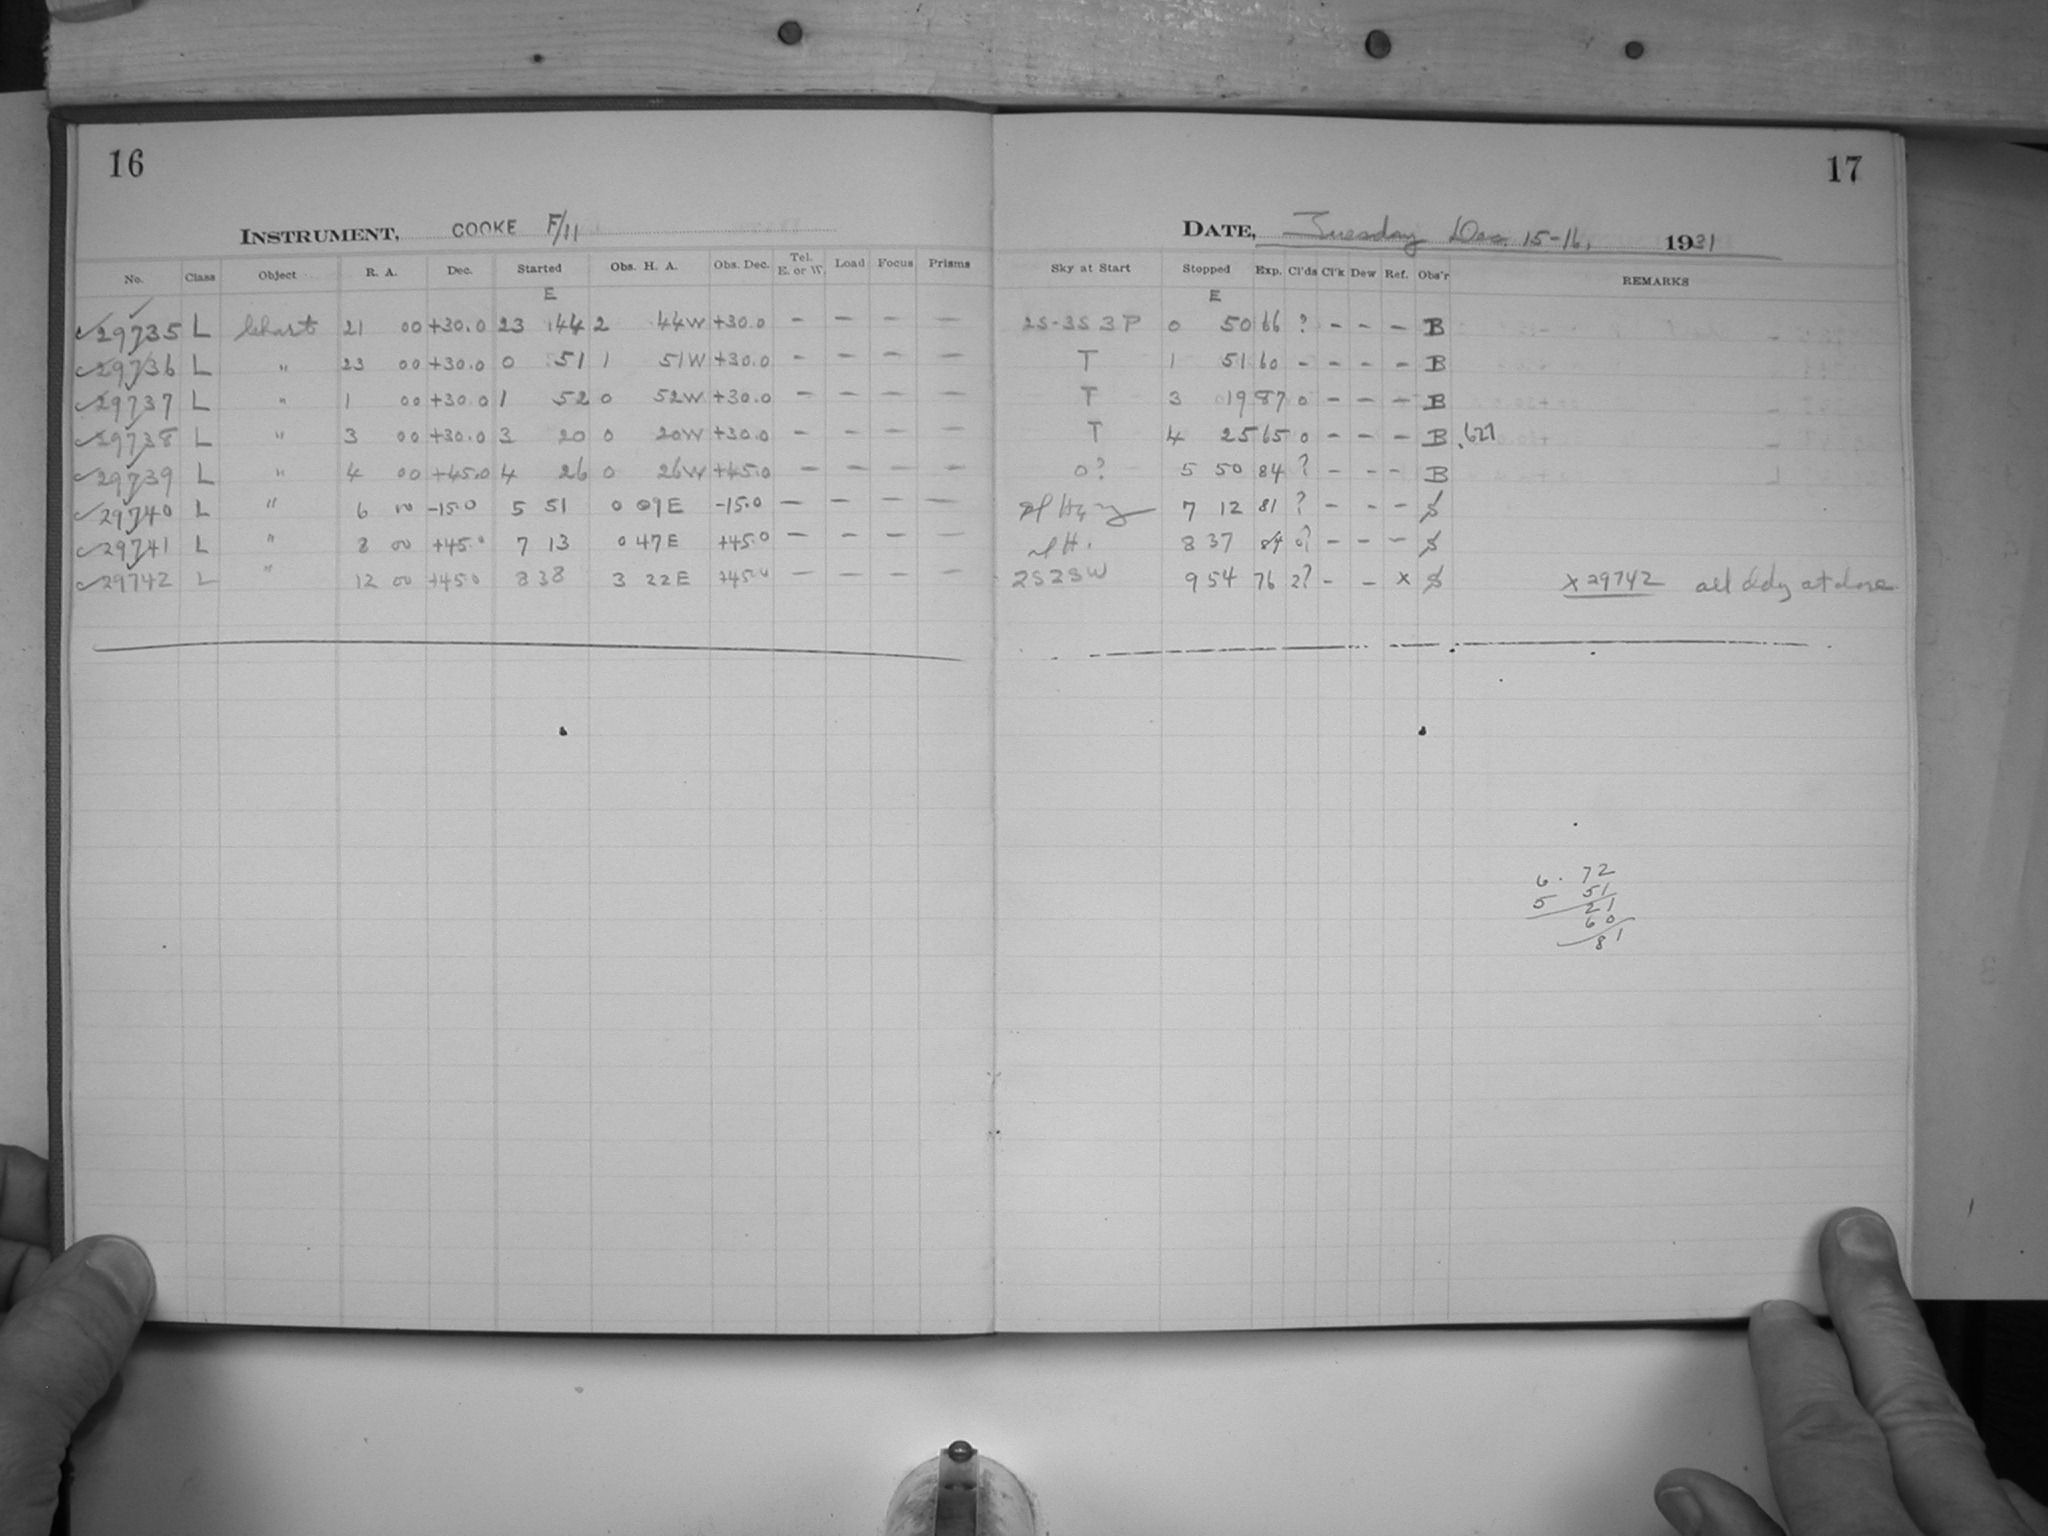 16
INSTRUMENT, COOKE F/11
No. Class Object R. A. Dec. Started Obs. H. A. Obs. Dec. Tel. E. or W. Load Focus Prisms
E
29735 L Chart 21 00 +30.0 23 44 2 44W +30.0 - - - -
29736 L " 23 00 +30.0 0 51 1 51W +30.0 - - - -
29737 L " 1 00 +30.0 1 52 0 52W +30.0 - - - -
29738 L " 3 00 +30.0 3 20 0 20W +30.0 - - - -
29739 L " 4 00 +45.0 4 26 0 26W +45.0 - - - -
29740 L " 6 00 -15.0 5 51 0 09E -15.0 - - - -
29741 L " 8 00 +45.0 7 13 0 47E +45.0 - - - -
29742 L " 12 00 +45.0 8 38 3 22E +45.0 - - - -
17
DATE, Tuesday Dec. 15-16, 1931
Sky at Start Stopped Exp. Cl'ds Cl'k Dew Ref. Obs'r REMARKS
E
2S-3S 3P 0 50 66 ? - - - B
T 1 51 60 - - - - B
T 3 19 87 0 - - - B
T 4 25 65 0 - - - B .627
0? 5 50 84 ? - - - B
7 12 81 ? - - - S
H. 8 37 84 0? - - - S
2S2SW 9 54 76 2? - - x S x 29742 all at close
6. 72
5 51
21
60
81